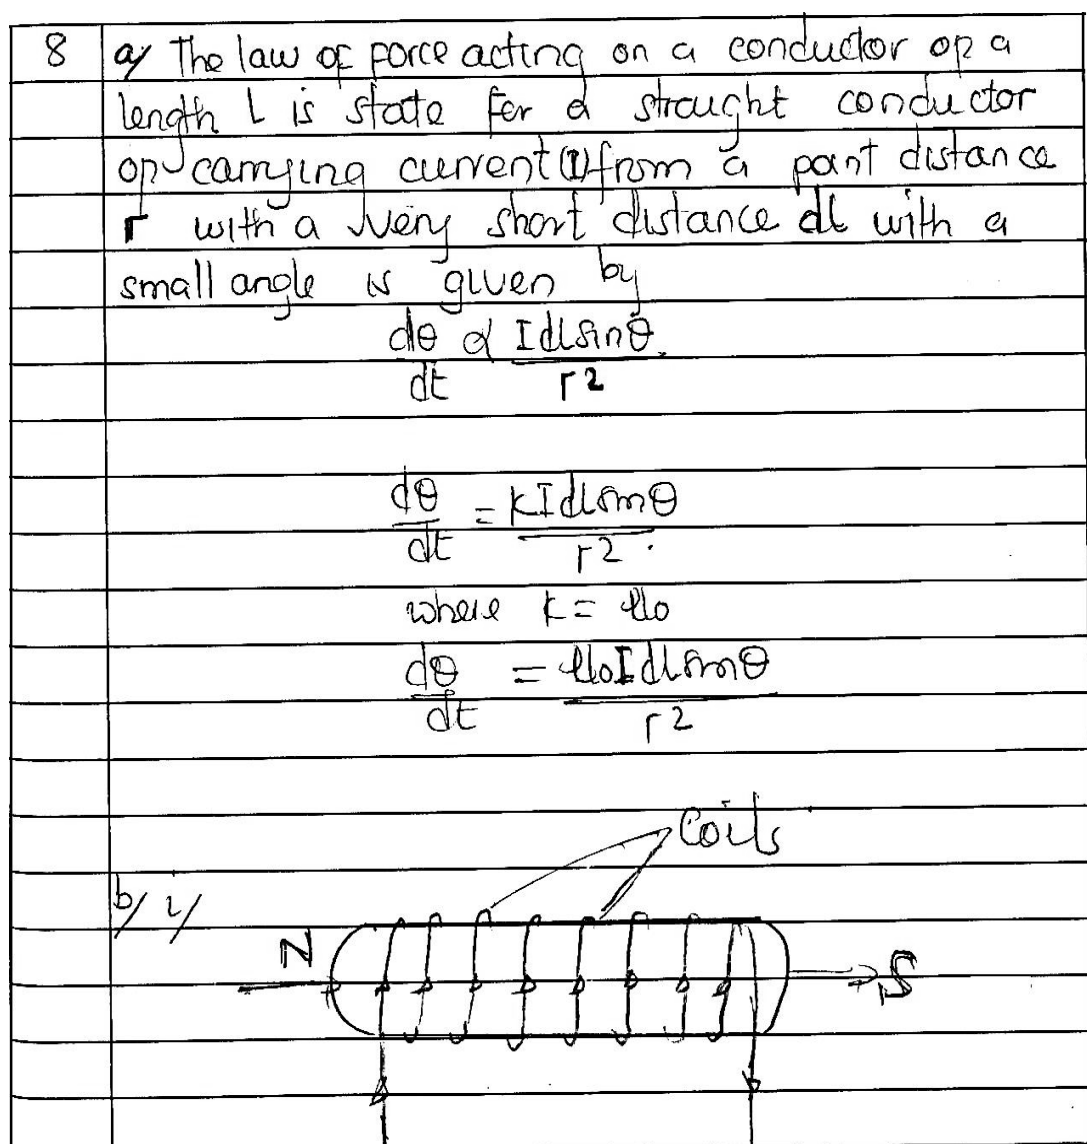 8 a/ The law of force acting on a conductor op a
length L is state for a straught conductor
op carrying current(I) from a point distance
r with a very short distance dl with a
small angle is given by
dθ/dt α Idlsinθ/r2
dθ/dt = kIdlsinθ/r2.
where k = µo
dθ/dt = µoIdlsinθ/r2
Coils
b/ i/
N S